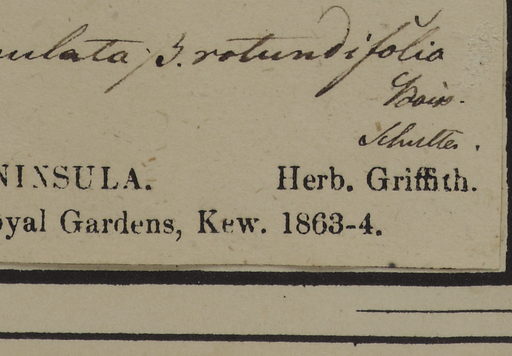 ulata β. rotundifolia
Schultes.
NINSULA. Herb. Griffith.
oyal Gardens, Kew. 1863-4.